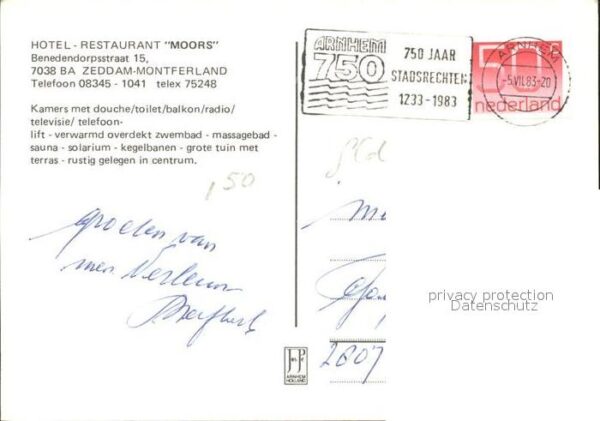 HOTEL - RESTAURANT "MOORS"
Benedendorpsstraat 15,
7038 BA ZEDDAM-MONTFERLAND
Telefoon 08345 - 1041 telex 75248
Kamers met douche/toilet/balkon/radio/
televisie/ telefoon-
lift - verwarmd overdekt zwembad - massagebad -
sauna - solarium - kegelbanen - grote tuin met
terras - rustig gelegen in centrum.
ARNHEM
750
750 JAAR
STADSRECHTEN
1233 - 1983
50
nederland
ARNHEM
-5.VII.83-20
1,50
groeten van
privacy protection
Datenschutz
2807
JosPé
ARNHEM
HOLLAND